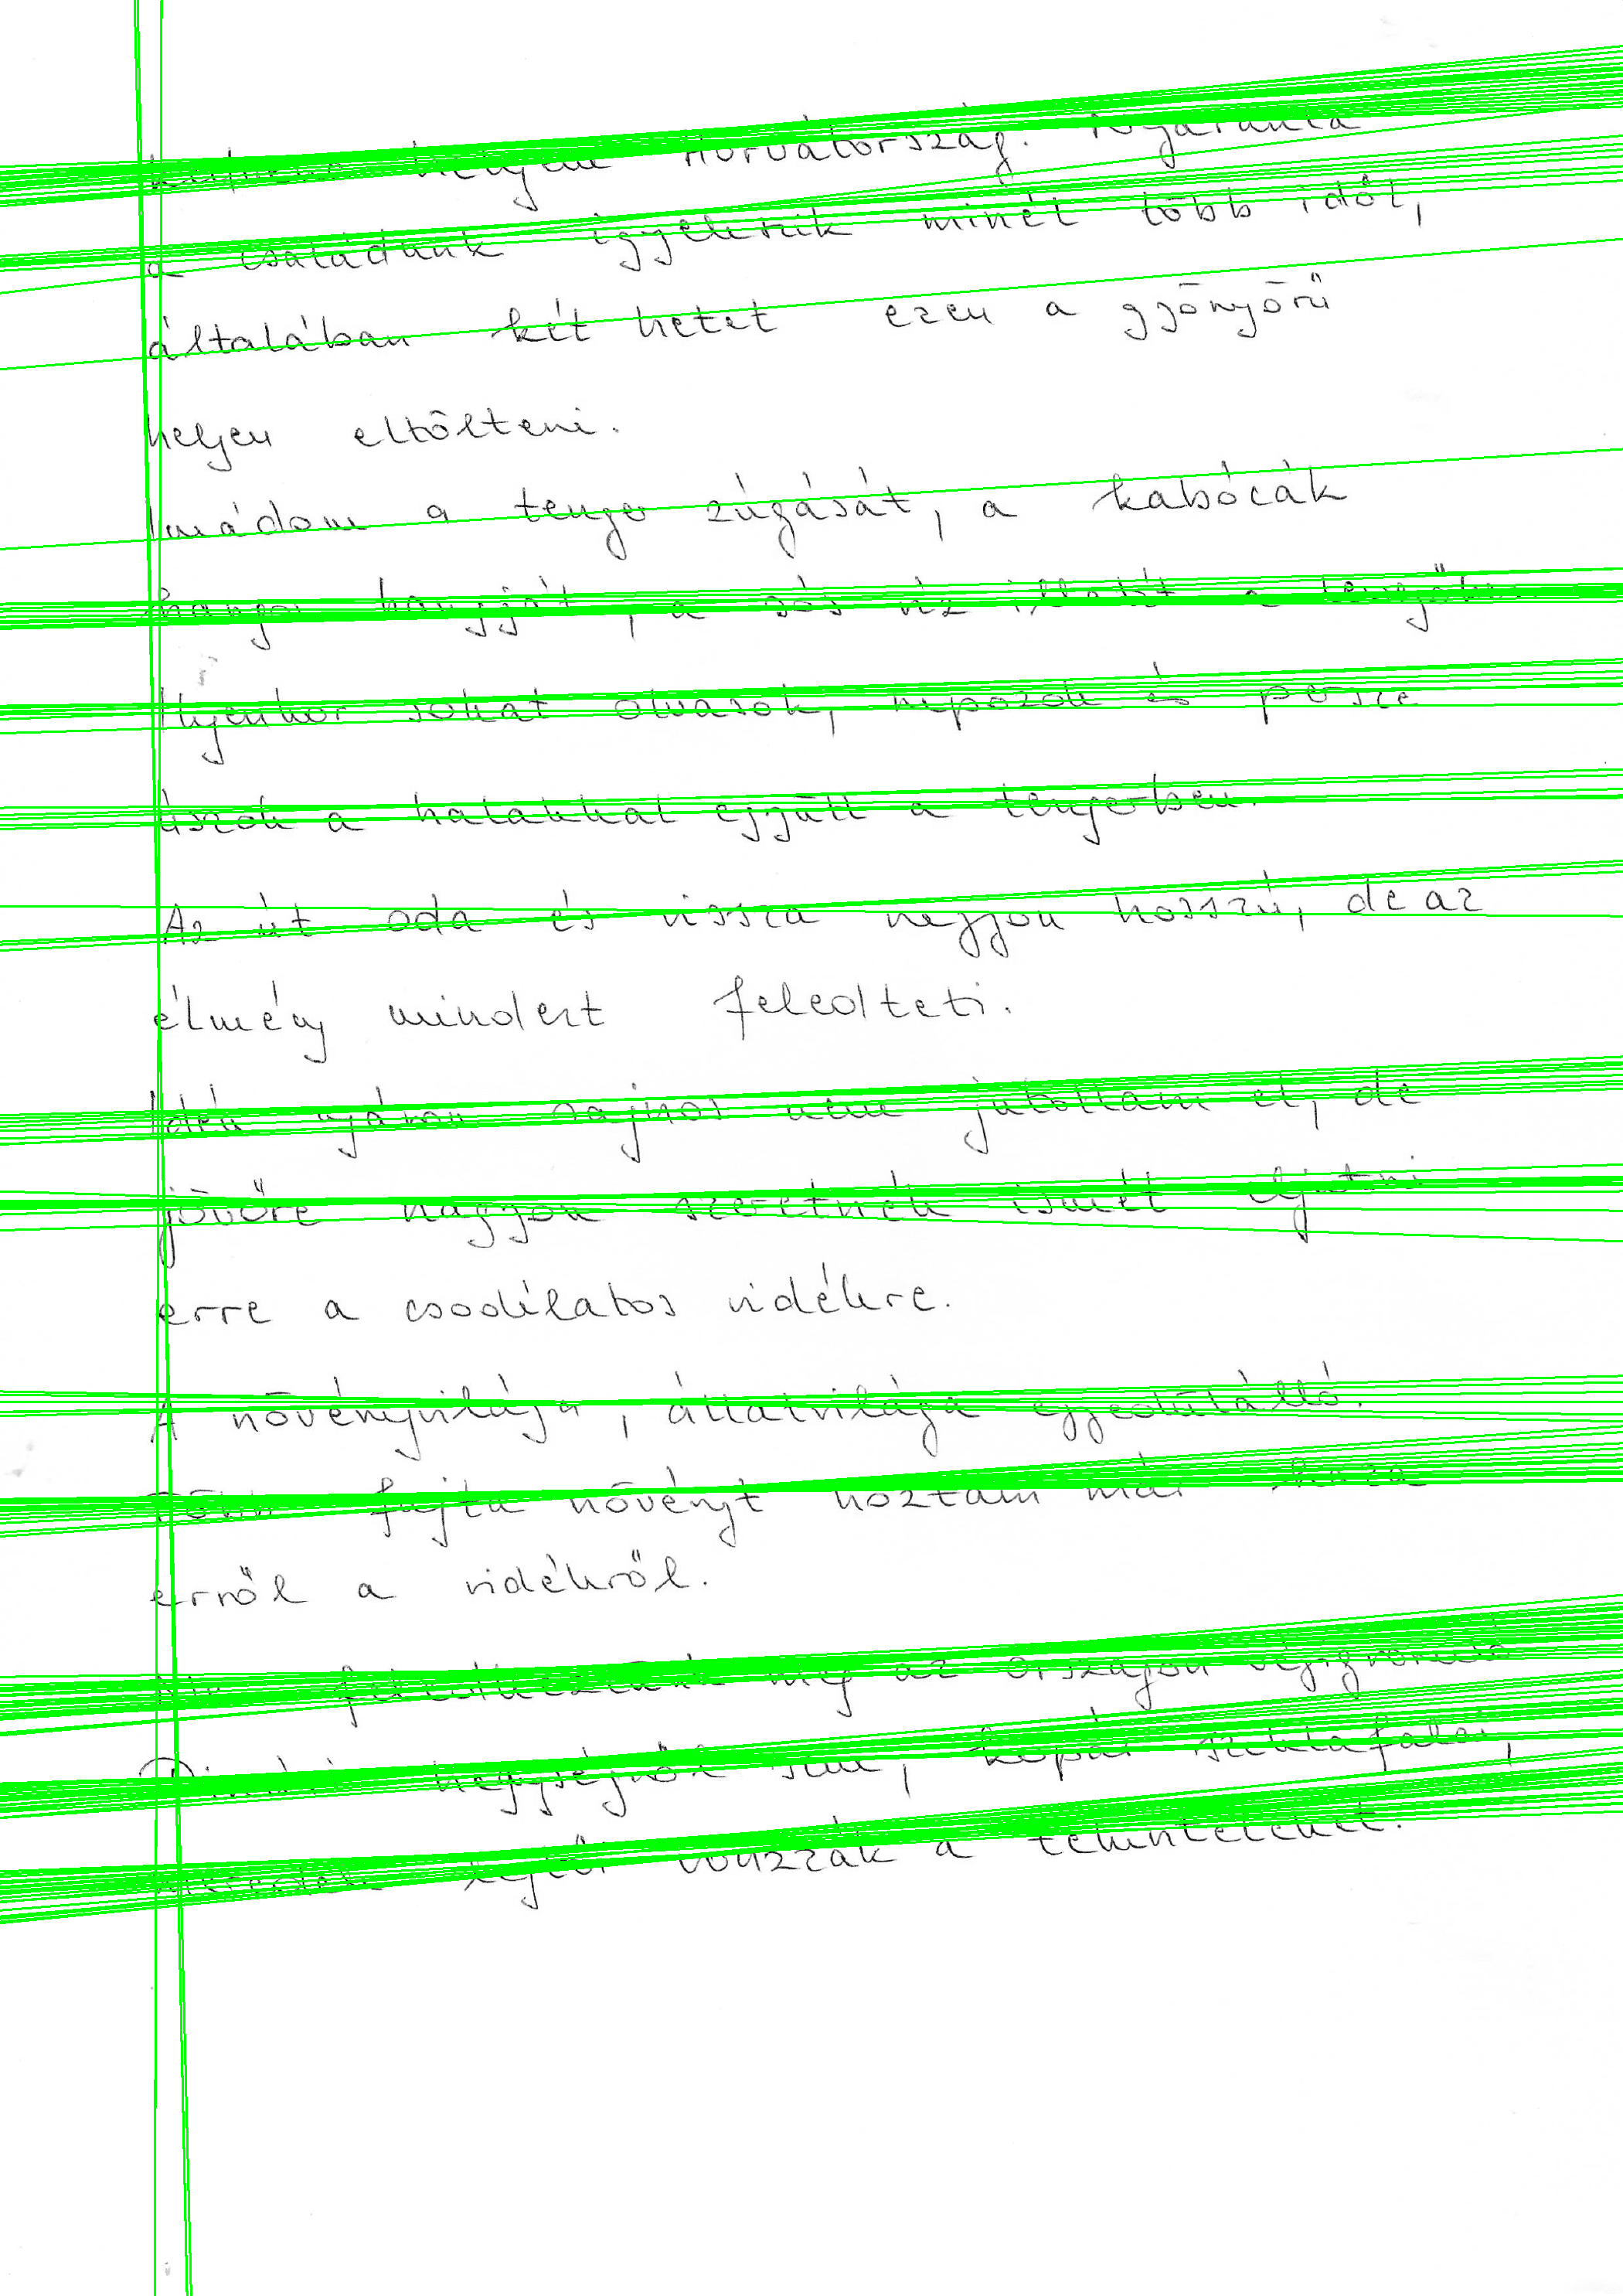 Horvátország.
a családunk igyekszik minél több időt,
általában két hetet ezen a gyönyörű
helyen eltölteni.
Imádom a tenger zúgását, a kabócák
hangos hangját, a sós víz illatát a
Ilyenkor sokat olvasok, napozok és persze
úszok a halakkal együtt a tengerben.
Az út oda és vissza nagyon hosszú, de az
élmény mindezt feledteti.
Idén nyáron sajnos nem jutottam el, de
jövőre nagyon szeretnék ismét eljutni
erre a csodálatos vidékre.
A növényvilága, állatvilága egyedülálló.
fajta növényt hoztam már haza
erről a vidékről.
meg az országon
hegységről sem, kopár sziklafalai,
vonzzák a tekinteteket.